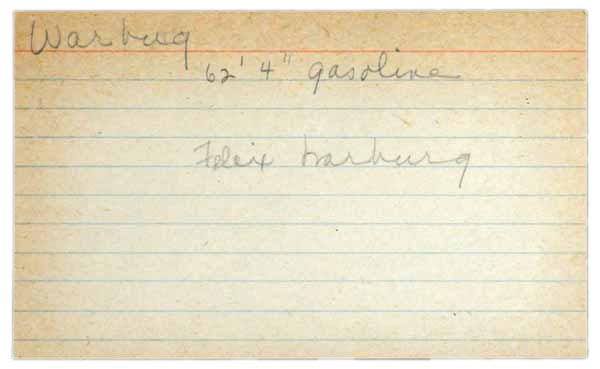 Warburg
62' 4" gasoline
Felix Warburg